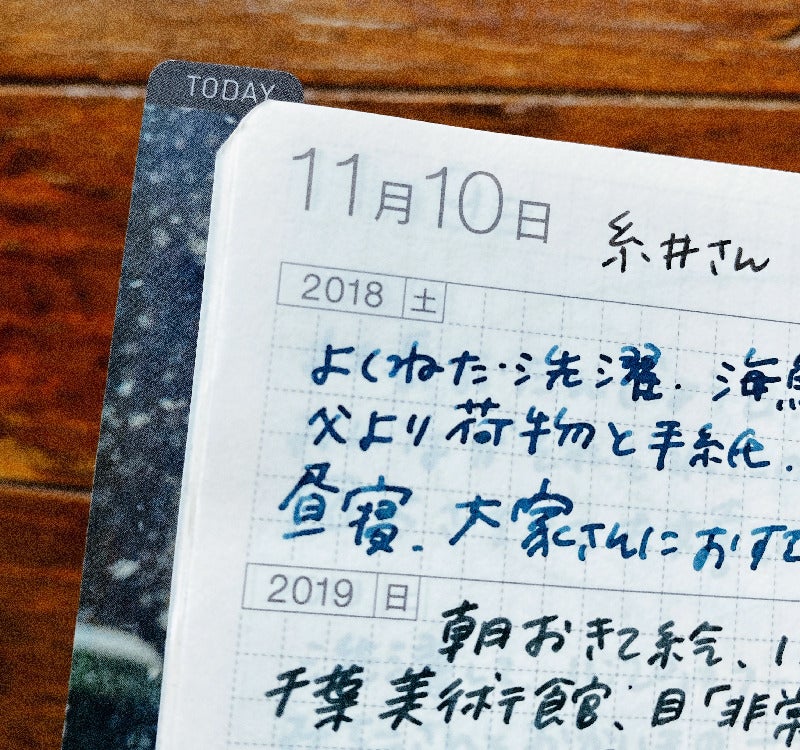 TODAY
11月10日 糸井さん
2018 土
よくねた…洗濯. 海
父より荷物と手紙.
昼寝. 大家さんにおす
2019 日
朝おきて絵、
千葉美術館、目「非常